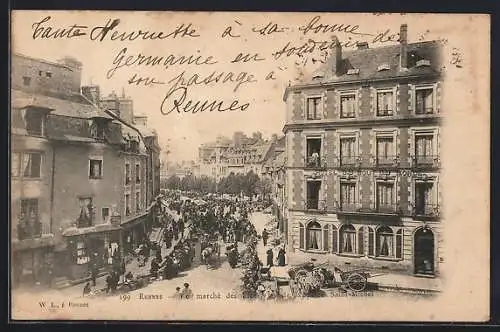 Tante Henriette à sa bonne
Germaine en souvenir de
son passage à
Rennes
199 RENNES — marché des Saint-Michel
W. L., à Rennes